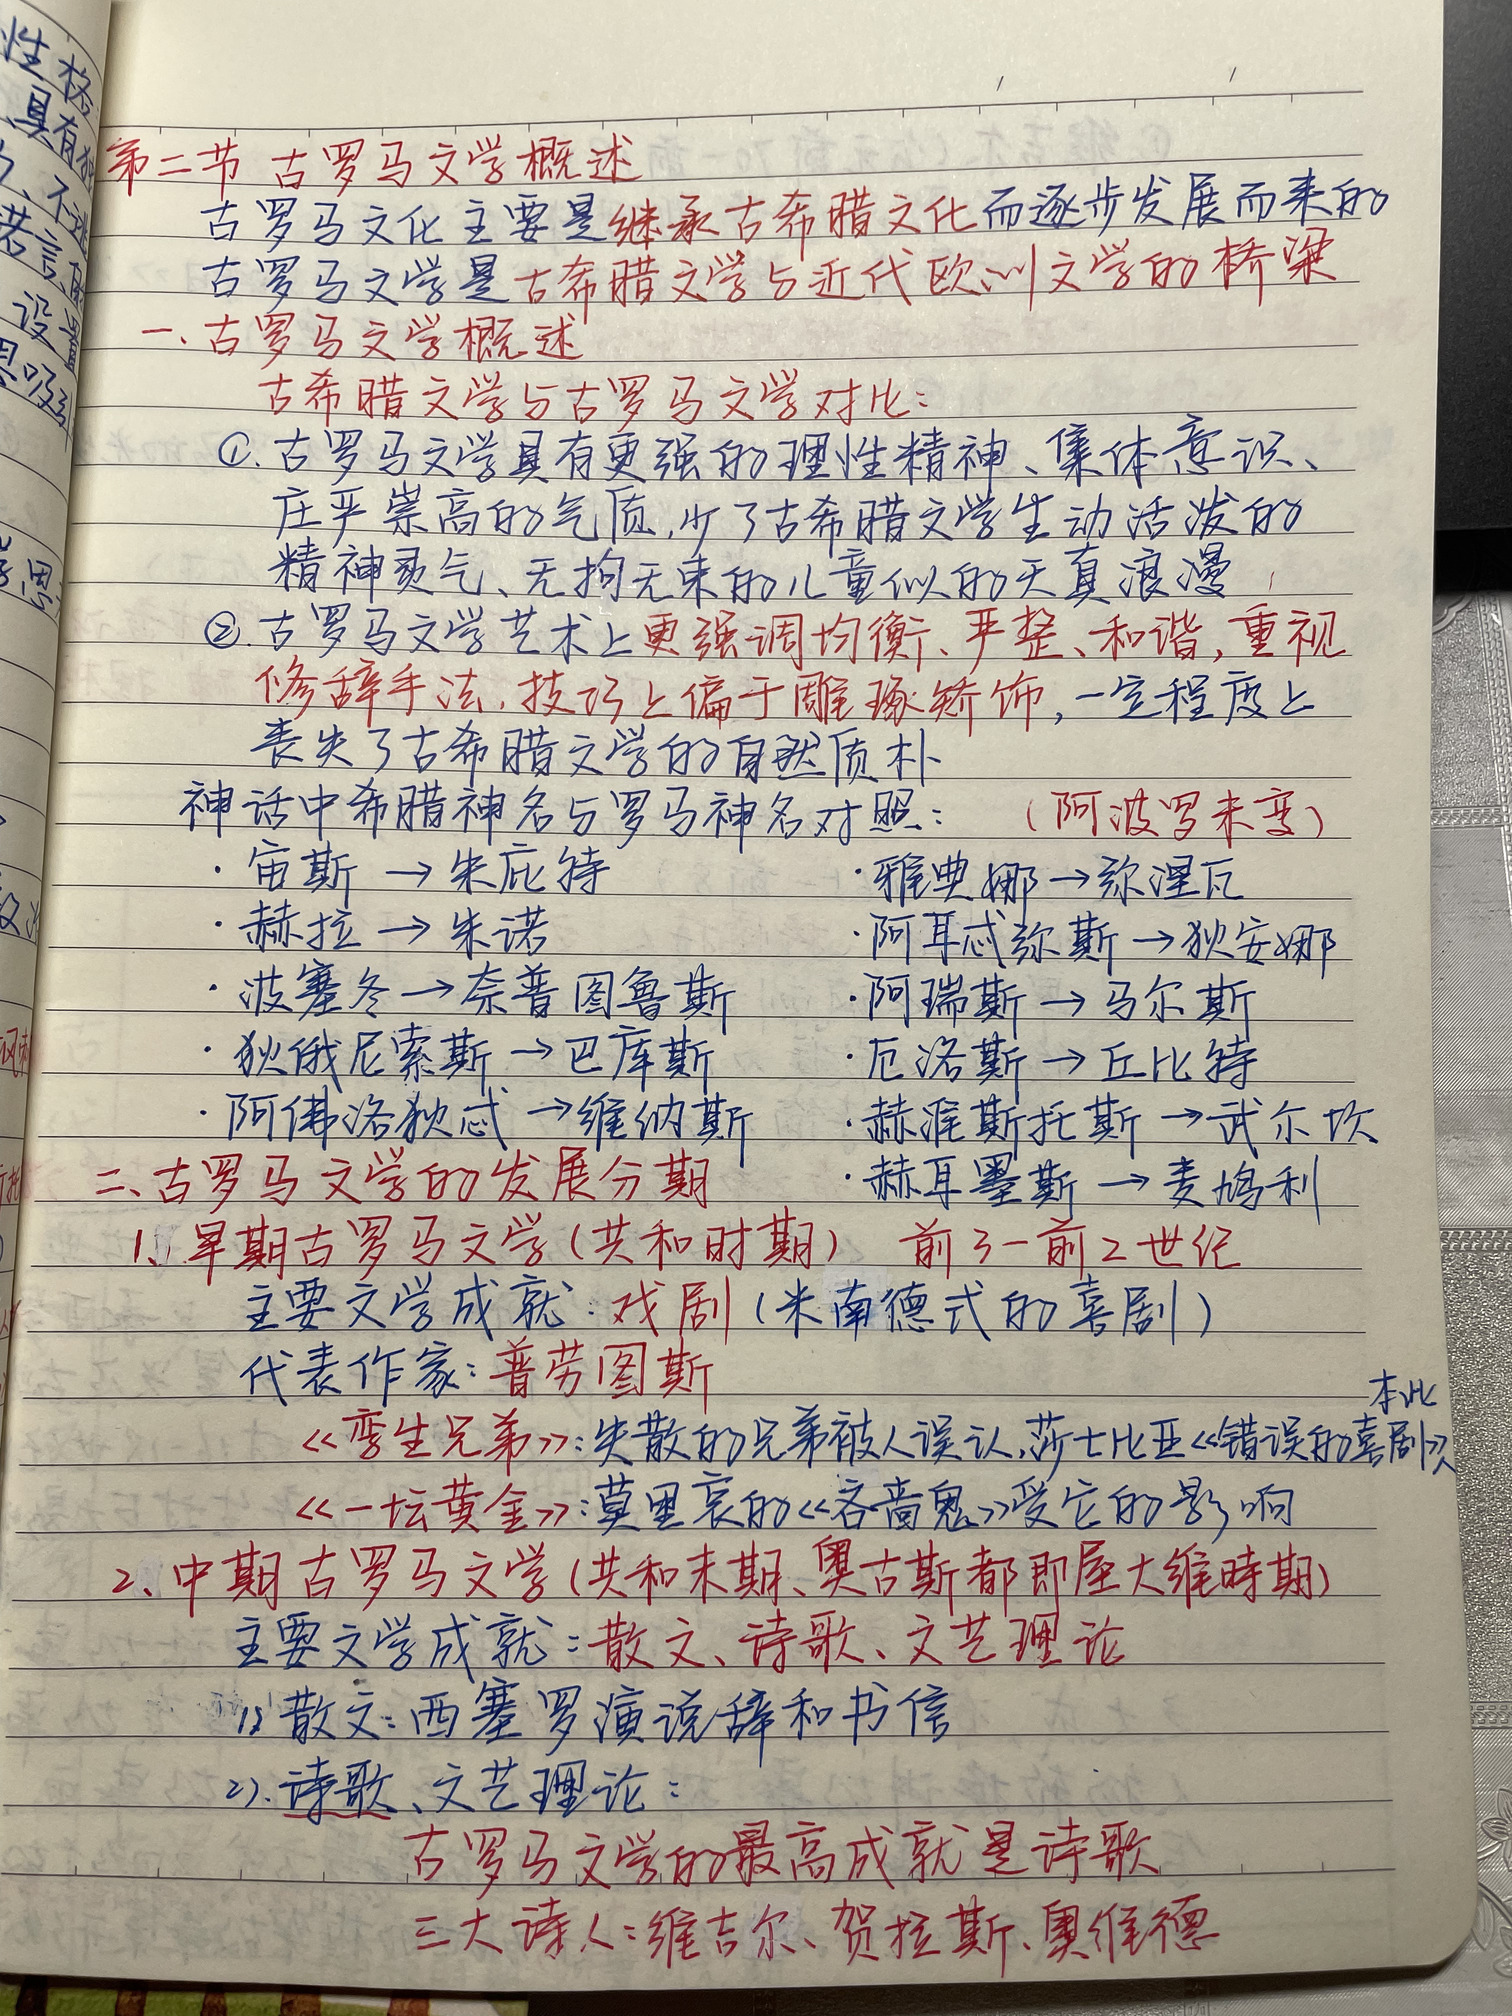 第二节 古罗马文学概述
古罗马文化主要是继承古希腊文化而逐步发展而来的
古罗马文学是古希腊文学与近代欧洲文学的桥梁
一、古罗马文学概述
古希腊文学与古罗马文学对比:
①.古罗马文学具有更强的理性精神、集体意识、
庄严崇高的气质,少了古希腊文学生动活泼的
精神灵气、无拘无束的儿童似的天真浪漫
②.古罗马文学艺术上更强调均衡、严整、和谐,重视
修辞手法,技巧上偏于雕琢矫饰,一定程度上
丧失了古希腊文学的自然质朴
神话中希腊神名与罗马神名对照: (阿波罗未变)
·宙斯→朱庇特 ·雅典娜→弥涅瓦
·赫拉→朱诺 ·阿耳忒弥斯→狄安娜
·波塞冬→奈普图鲁斯 ·阿瑞斯→马尔斯
·狄俄尼索斯→巴库斯 ·厄洛斯→丘比特
·阿佛洛狄忒→维纳斯 ·赫淮斯托斯→武尔坎
二、古罗马文学的发展分期 ·赫耳墨斯→麦鸠利
1、早期古罗马文学(共和时期) 前3-前2世纪
主要文学成就:戏剧(米南德式的喜剧)
代表作家:普劳图斯
本此
《孪生兄弟》:失散的兄弟被人误认,莎士比亚《错误的喜剧》
《一坛黄金》:莫里哀的《吝啬鬼》受它的影响
2、中期古罗马文学(共和末期、奥古斯都即屋大维時期)
主要文学成就:散文、诗歌、文艺理论
1)散文:西塞罗演说辞和书信
2).诗歌、文艺理论:
古罗马文学的最高成就是诗歌
三大诗人:维吉尔、贺拉斯、奥维德
性格
具有
不
诺言
设置
思